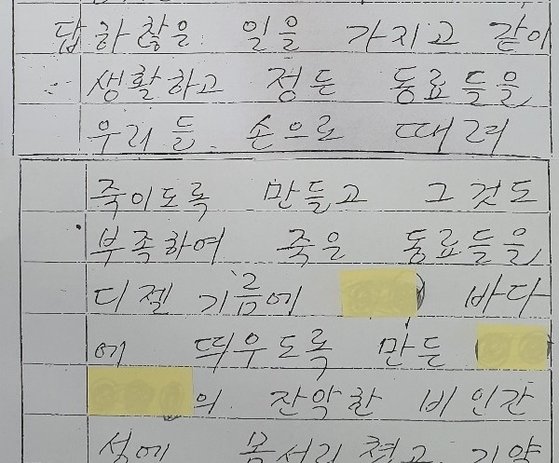 답하찮은 일을 가지고 같이
생활하고 정든 동료들을
우리들 손으로 때려
죽이도록 만들고 그것도
부족하여 죽은 동료들을
디젤 기름에 바다
에 띄우도록 만든
의 잔악한 비인간
성에 몸서리 쳤고